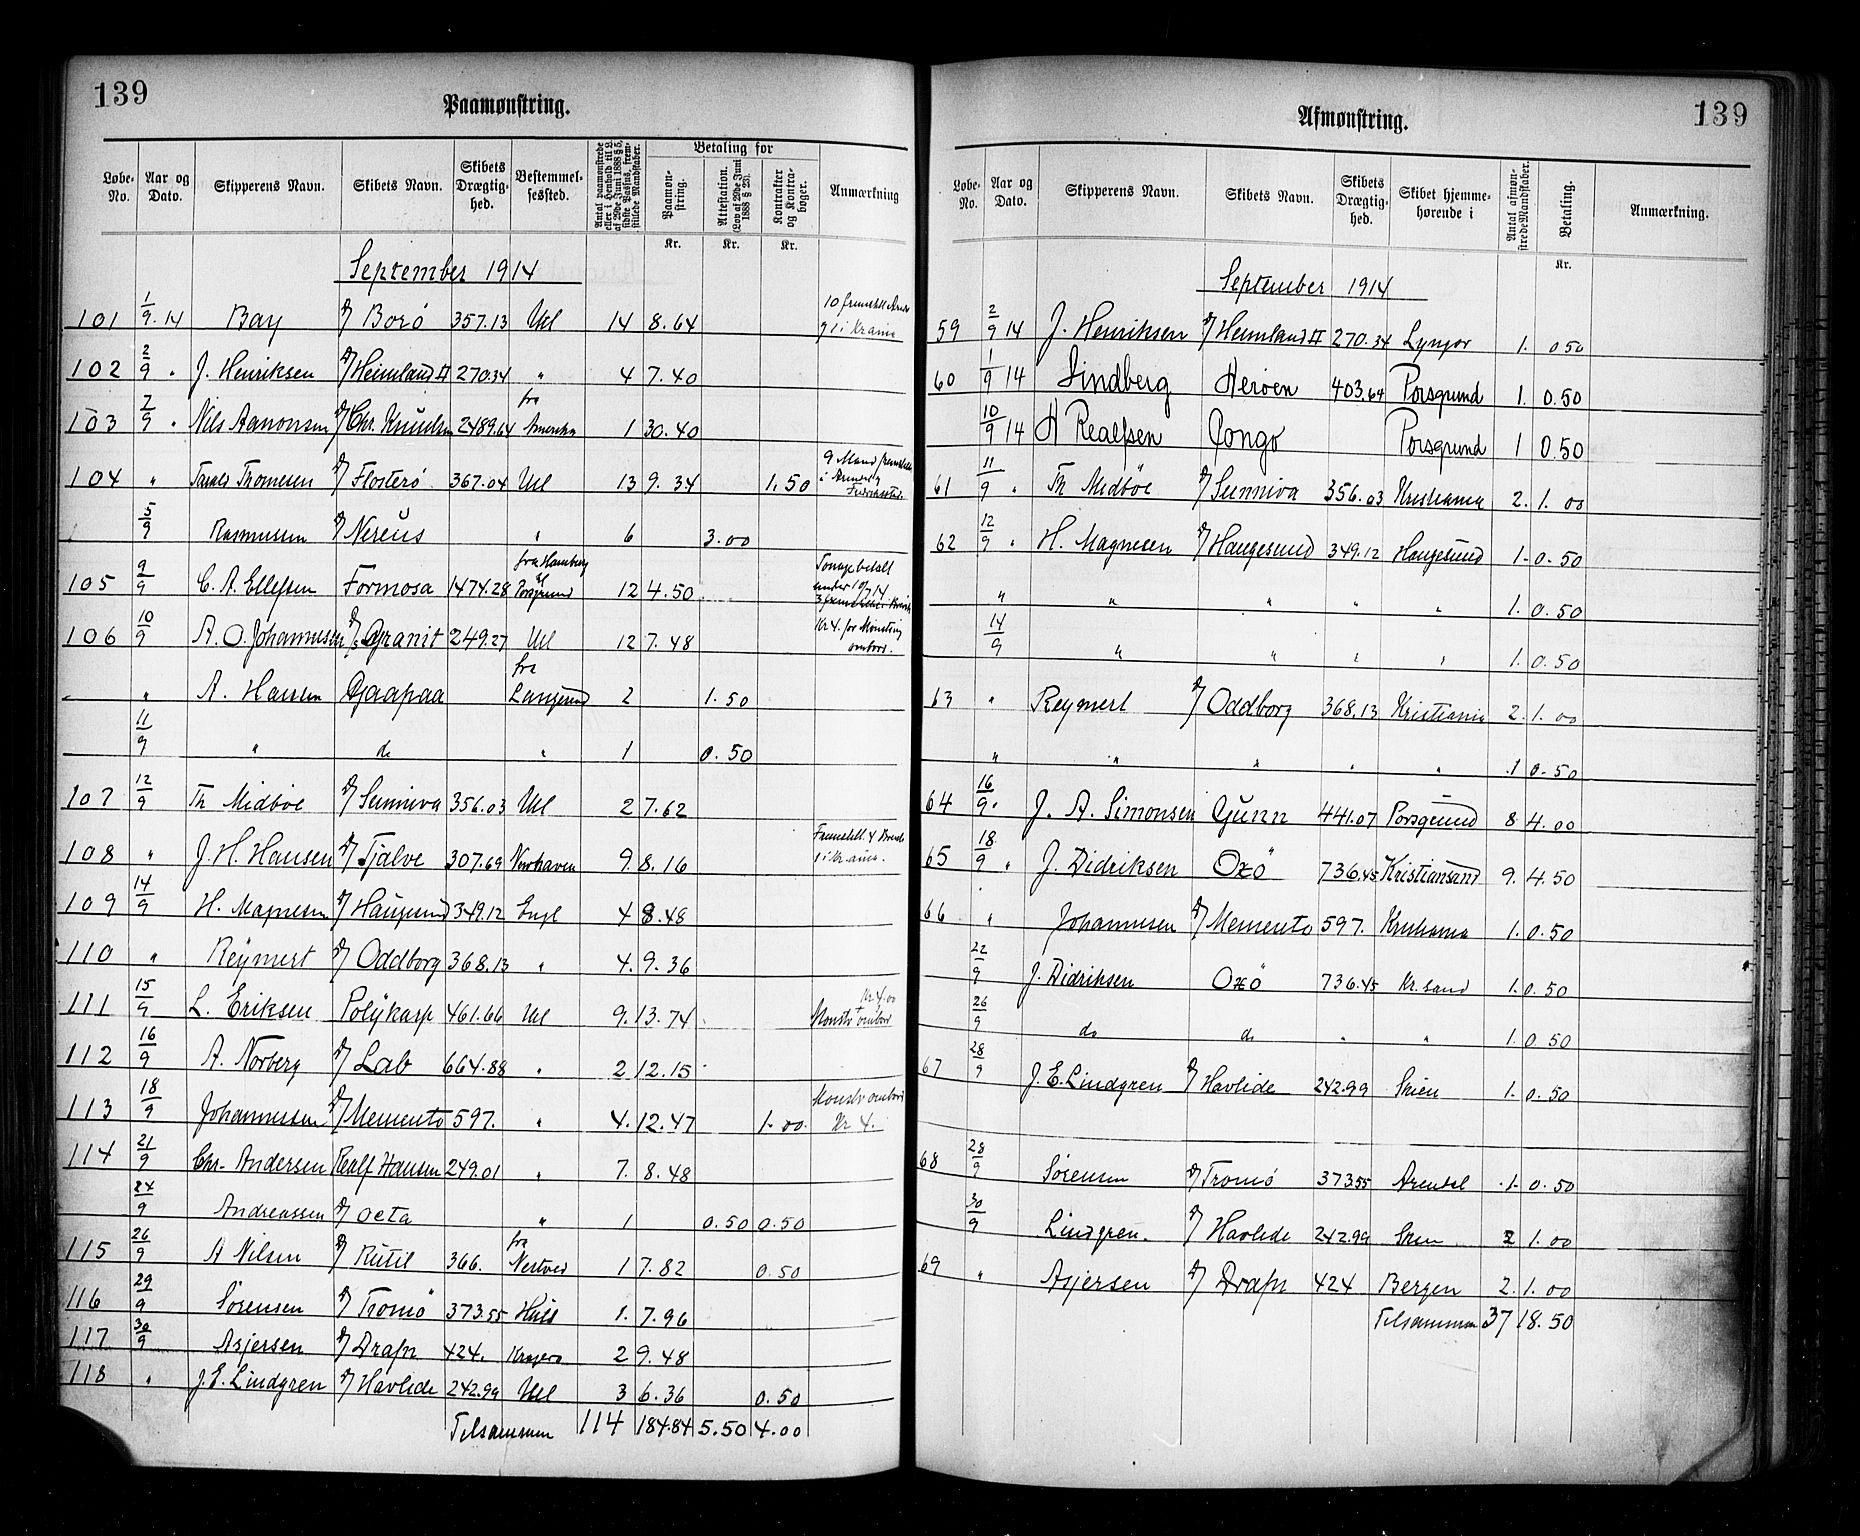 139
Paamønstring.
Løbe-No. Aar og Dato. Skipperens Navn. Skibets Navn. Skibets Drægtig-hed. Bestemmel-sessted. Antal paamønstrede eller i Henhold til L. af 29de Juni 1888 § 5, sidste Passus, frem-stillede Mandskaber. Betaling for Paamøn-string. Attestation. (Lov af 29de Juni 1888 § 23). Kontrakter og Kontra-bøger. Anmærkning
Kr. Kr. Kr.
September 1914
101 1/9.14 Bay D/ Borø 357.13 Udl 14 8.64 10 fremstill
102 2/9 " J. Henriksen D/ Heimland II 270.34 " 4 7.40
103 7/9 " Nils Aanonsen D/ Chr. Knudsen 2489.64 fra Amerika 1 30.40
104 " Tarald Thomesen D/ Flosterø 367.04 Udl 13 9.34 1.50 9 Mand
5/9 Rasmussen D/ Nereus " 6 3.00
105 9/9 C. A. Ellefsen Formosa 1474.28 fra Hamburg til Porsgrund 12 4.50 Tonage betalt under 10/7 14
106 10/9 A. O. Johannesen D/S Granit 249.27 Udl 12 7.48 Kr 4. for Mønstring ombord.
" A. Hansen Gjaapaa fra Langesund 2 1.50
11/9 " do " 1 0.50
107 12/9 Th Midbøe D/ Sunniva 356.03 Udl 2 7.62
108 " J. H. Hansen D/ Tjalve 307.69 Newhaven 9. 8.16 Fremstill. 4
109 14/9 H. Magnesen D/ Haugesund 349.12 Engl 4 8.48
110 " Reymert D/ Oddborg 368.13 " 4. 9.36
111 15/9 L. Eriksen Polykarp 461.66 Udl 9. 13.74 Kr 4.00 Mønstr ombord
112 16/9 A. Norberg D/ Lab 664.88 " 2 12.15
113 18/9 Johannessen D/ Memento 597. " 4. 12.47 1.00 Mønstr ombord Kr 4.
114 21/9 Chr. Andersen Realf Hansen 249.01 " 7. 8.48
24/9 Andreassen D/ Octa " 1 0.50 0.50
115 26/9 A Nilsen D/ Rutil 366. fra Nestved 1 7.82 0.50
116 29/9 Sørensen D/ Tromø 373.55 Hull 1. 7.96
117 30/9 Asjersen D/ Drafn 424. Kragerø 2 9.48
118 " J. E. Lindgren D/ Havlide 242.99 Udl 3 6.36 0.50
Tilsammen 114 184.84 5.50 4.00
139
Afmønstring.
Løbe-No. Aar og Dato. Skipperens Navn. Skibets Navn. Skibets Drægtig-hed. Skibet hjemme-hørende i Antal afmøn-strede Mandskaber. Betaling. Anmærkning.
Kr.
September 1914
59 2/9 14 J. Henriksen D/ Heimland II 270.34 Lyngør 1. 0 50
60 1/9 14 Lindberg Herøen 403.64 Porsgrund 1. 0.50
10/9 14 H Realfsen Congo Porsgrund 1 0.50
61 11/9 " Th Midbøe D/ Sunniva 356.03 Kristiania 2. 1.00
62 12/9 " H. Magnesen D/ Haugesund 349.12 Haugesund 1. 0.50
" " " " " 1. 0.50
14/9 " " " " 1. 0.50
63 " Reymert D/ Oddborg 368.13 Kristiania 2. 1.00
" " " " " 1 0.50
64 16/9 " J. A. Simonsen Gunn 441.07 Porsgrund 8 4.00
65 18/9 " J. Didriksen Oxö 736.45 Kristiansand 9. 4.50
66 " Johannesen D/ Memento 597. Kristiania 1. 0.50
22/9 J. Didriksen Oxö 736.45 Kr. sand 1. 0.50
26/9 do do " " 1. 0.50
67 28/9 J. E. Lindgren D/ Havlide 242.99 Skien 1. 0.50
68 28/9 Sørensen D/ Tromø 373.55 Arendal 1. 0.50
30/9 Lindgren. D/ Havlide 242.99 Skien 2 1.00
69 " Asjersen D/ Drafn 424 Bergen 2. 1.00
Tilsammen 37 18.50